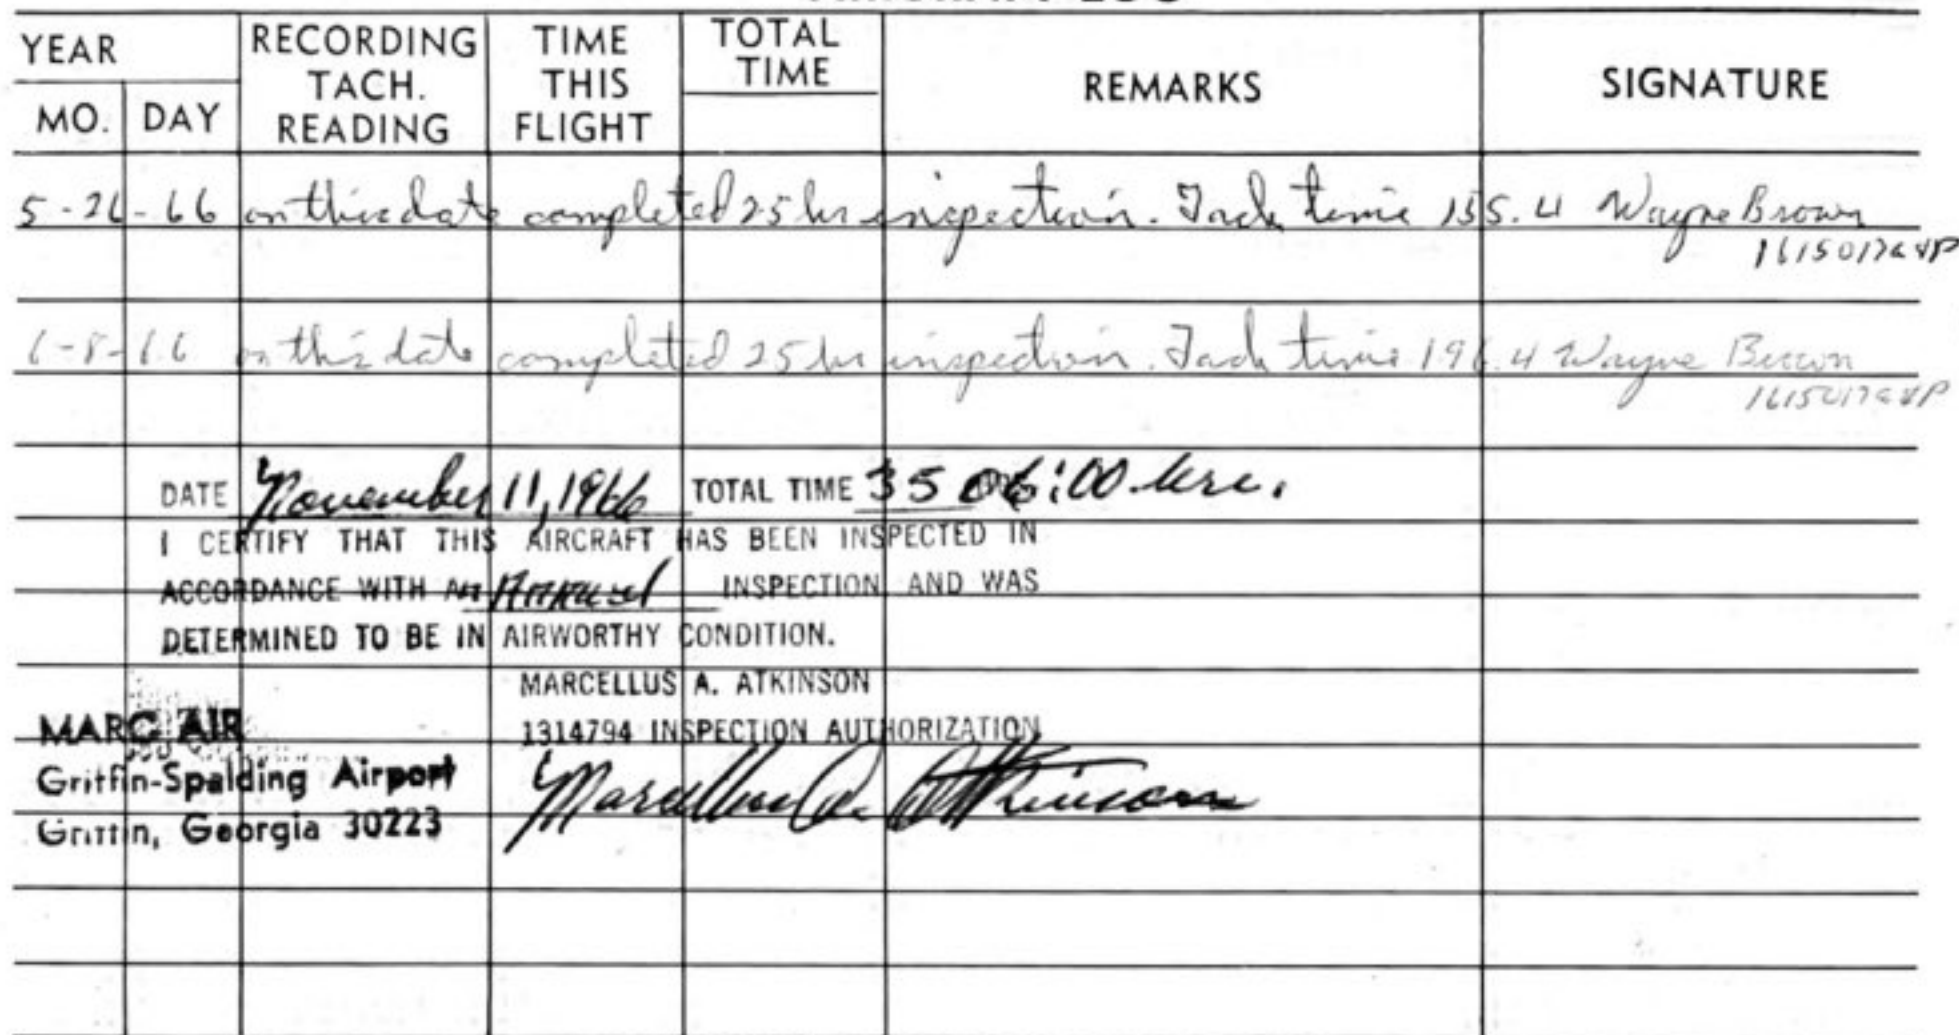 YEAR RECORDING TACH. READING TIME THIS FLIGHT TOTAL TIME REMARKS SIGNATURE
MO. DAY
5-26-66 on this date completed 25 hr inspection. Tach time 155.4 Wayne Brown
6-8-66 on this date completed 25 hr inspection. Tach time 196.4 Wayne Brown
DATE November 11, 1966 TOTAL TIME 3506:00 hrs.
I CERTIFY THAT THIS AIRCRAFT HAS BEEN INSPECTED IN
ACCORDANCE WITH AN Annual INSPECTION AND WAS
DETERMINED TO BE IN AIRWORTHY CONDITION.
MARCELLUS A. ATKINSON
1314794 INSPECTION AUTHORIZATION
MARC AIR
Griffin-Spalding Airport
Griffin, Georgia 30223
Marcellus A. Atkinson